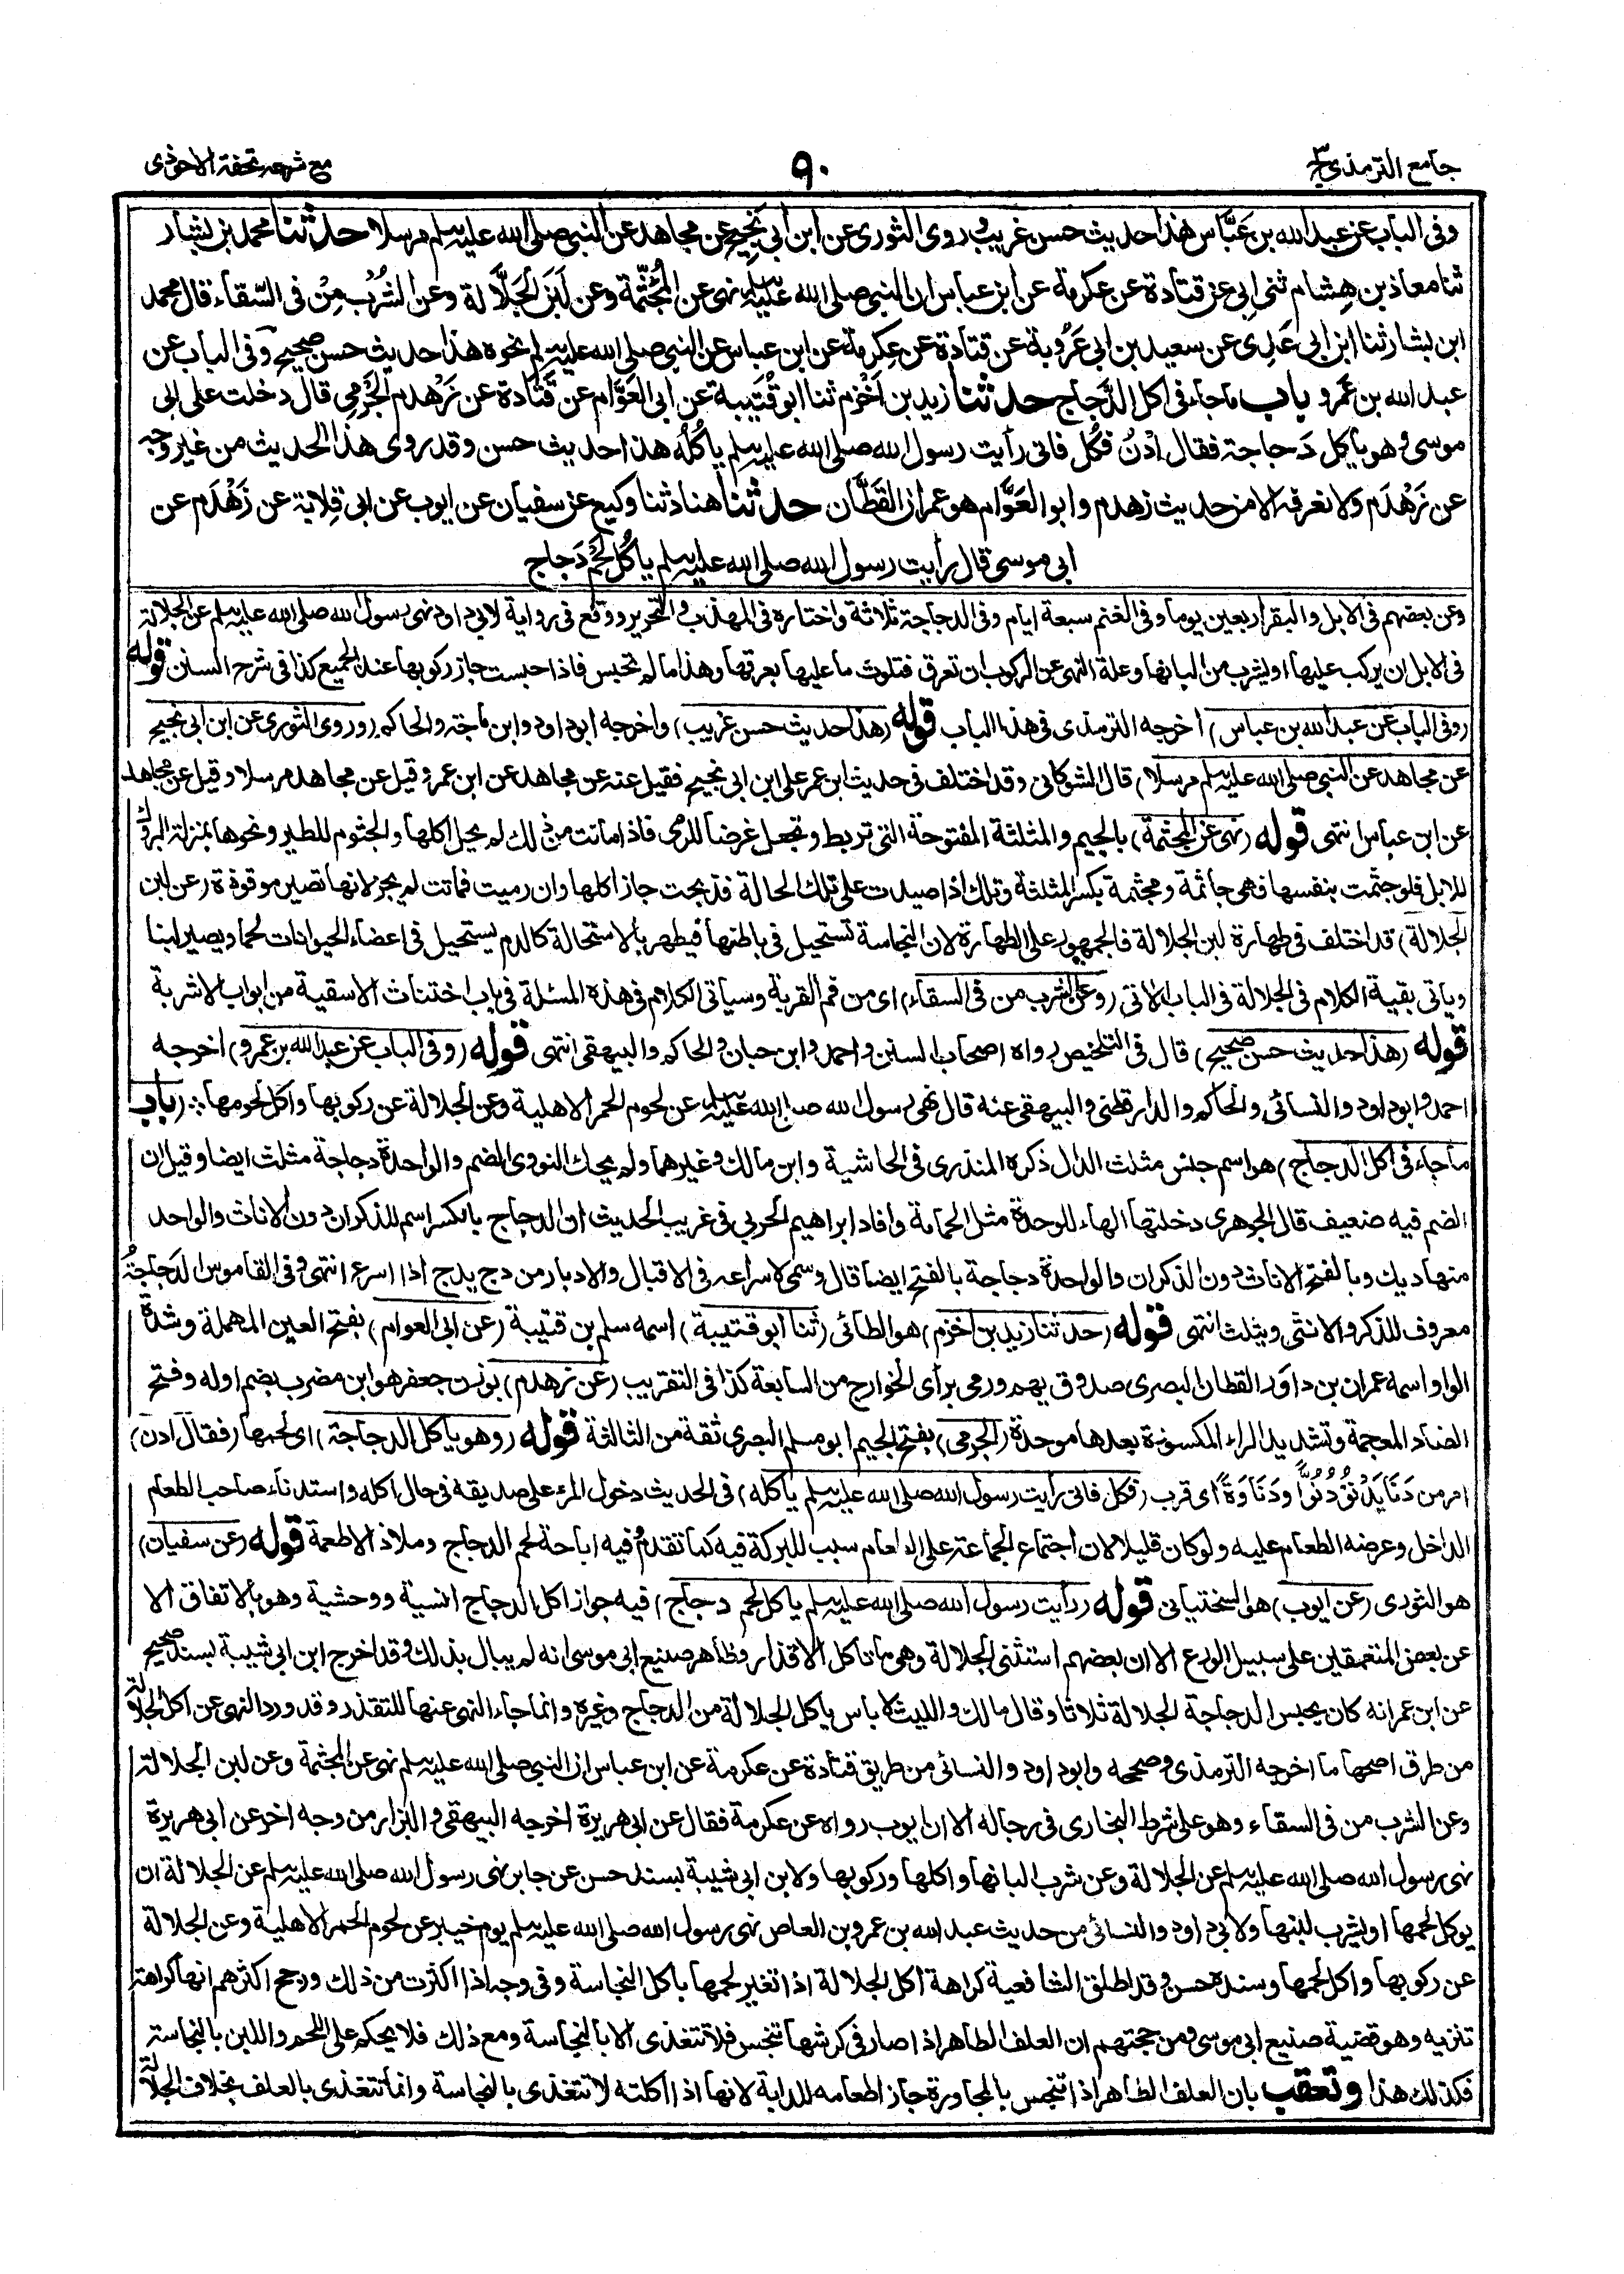 جامع الترمذي ج٣
٩٠
مع شرحه تحفة الاحوذى
وفى الباب عن عبد الله بن عَبَّاس هذا حديث حسن غريب وروى الثورى عن ابن أبى نَجِيح عن مجاهد عن النبى صلى الله عليه وسلم مرسلا حدثنا محمد بن بشار
ثنا معاذ بن هِشام ثنى ابى عن قتادة عن عكرمة عن ابن عباس ان النبى صلى الله عليه وسلم نهى عن المُجَثَّمة وعن لَبَن الجَلاَّلة وعن الشُرْب مِنْ فى السّقاء قال محمد
ابن بشار ثنا ابن ابى عَدِى عن سعيد بن ابى عَرُوبة عن قتادة عن عِكرمة عن ابن عباس عن النبى صلى الله عليه وسلم نحوه هذا حديث حسن صحيح وفى الباب عن
عبد الله بن عَمرو باب ما جاء فى اكل الدَّجاج حدثنا زيد بن اَخْزم ثنا ابو قُتَيبة عن ابى العَوَّام عن قَتَادة عن زَهْدم الجَرْمِى قال دخلت على ابى
موسى وهو يأكل دَجاجة فقال اُدْنُ فكُل فانى رأيت رسول الله صلى الله عليه وسلم يأكُلُه هذا حديث حسن وقد روى هذا الحديث من غير وجه
عن زَهْدَم ولا نعرفه الا من حديث زهدم وابو العَوَّام هو عمران القَطَّان حدثنا هناد ثنا وكيع عن سفيان عن ايوب عن ابى قِلابة عن زَهْدَم عن
ابى موسى قال رأيت رسول الله صلى الله عليه وسلم يأكُل لَحْمَ دَجاج
وعن بعضهم فى الابل والبقر اربعين يوما وفى الغنم سبعة ايام وفى الدجاجة ثلاثة واختاره فى المهذب والتحرير ووقع فى رواية لابى داود نهى رسول الله صلى الله عليه وسلم عن الجلالة
فى الابل ان يركب عليها او يشرب من البانها وعلة النهى عن الركوب ان تعرق فتلوث ما عليها بعرقها وهذا ما لم تحبس فاذا حبست جاز ركوبها عند الجميع كذا فى شرح السنن قوله
(وفى الباب عن عبد الله بن عباس) أخرجه الترمذى فى هذا الباب قوله (هذا حديث حسن غريب) واخرجه ابو داود وابن ماجة والحاكم (وروى الثورى عن ابن ابى نجيح
عن مجاهد عن النبى صلى الله عليه وسلم مرسلا) قال الشوكانى وقد اختلف فى حديث ابن عمر على ابن ابى نجيح فقيل عنه عن مجاهد عن ابن عمر وقيل عن مجاهد مرسلا وقيل عن مجاهد
عن ابن عباس انتهى قوله (نهى عن المجثمة) بالجيم والمثلثة المفتوحة التى تربط وتجعل غرضا للرمى فاذا ماتت من ذلك لم يحل اكلها والجثوم للطير ونحوها بمنزلة البروك
للابل فلو جثمت بنفسها فهى جاثمة ومجثمة بكسر المثلثة وتلك اذا صيدت على تلك الحالة فذبحت جاز اكلها وان رميت فماتت لم يجز لانها تصير موقوذة (عن لبن
الجلالة) قد اختلف فى طهارة لبن الجلالة فالجمهور على الطهارة لان النجاسة تستحيل فى باطنها فيطهر بالاستحالة كالدم يستحيل فى اعضاء الحيوانات لحما ويصير لبنا
ويأتى بقية الكلام فى الجلالة فى الباب الآتى (وعن الشرب من فى السقاء) اى من فم القربة وسيأتى الكلام فى هذه المسئلة فى باب اختناث الاسقية من ابواب الاشربة
قوله (هذا حديث حسن صحيح) قال فى التلخيص رواه اصحاب السنن واحمد وابن حبان والحاكم والبيهقى انتهى قوله (وفى الباب عن عبد الله بن عمرو) اخرجه
احمد وابو داود والنسائى والحاكم والدارقطنى والبيهقى عنه قال نهى رسول الله صلى الله عليه وسلم عن لحوم الحمر الاهلية وعن الجلالة عن ركوبها واكل لحومها (باب
ما جاء فى اكل الدجاج) هو اسم جنس مثلث الدال ذكره المنذرى فى الحاشية وابن مالك وغيرهما ولم يحك النووى الضم والواحدة دجاجة مثلث ايضا وقيل ان
الضم فيه ضعيف قال الجوهرى دخلتها الهاء للوحدة مثل الحمامة وافاد ابراهيم الحربى فى غريب الحديث ان الدجاج بالكسر اسم للذكران دون الاناث والواحد
منها ديك وبالفتح الاناث دون الذكران والواحدة دجاجة بالفتح ايضا قال وسمى لاسراعه فى الاقبال والادبار من دج يدج اذا اسرع انتهى وفى القاموس الدَجَاجةُ
معروف للذكر والانثى ويثلث انتهى قوله (حدثنا زيد بن اخزم) هو الطائى (ثنا ابو قتيبة) اسمه سلم بن قتيبة (عن ابى العوام) بفتح العين المهملة وشدة
الواو اسمه عمران بن داوَر القطان البصرى صدوق يهم ورمى برأى الخوارج من السابعة كذا فى التقريب (عن زهدم) بوزن جعفر هو ابن مضرب بضم اوله وفتح
الضاد المعجمة وتشديد الراء المكسورة بعدها موحدة (الجرمى) بفتح الجيم ابو مسلم البصرى ثقة من الثالثة قوله (وهو يأكل الدجاجة) اى لحمها (فقال ادن)
امر من دَنَا يَدْنُوْ دُنُوًّا ودَنَاوَةً اى قرب (فكل فانى رأيت رسول الله صلى الله عليه وسلم يأكله) فى الحديث دخول المرء على صديقه فى حال اكله واستدناء صاحب الطعام
الداخل وعرضه الطعام عليه ولو كان قليلا لان اجتماع الجماعة على الطعام سبب للبركة فيه كما تقدم وفيه اباحة لحم الدجاج وملاذ الاطعمة قوله (عن سفيان)
هو الثورى (عن ايوب) هو السختيانى قوله (رأيت رسول الله صلى الله عليه وسلم يأكل لحم دجاج) فيه جواز اكل الدجاج انسية ووحشية وهو بالاتفاق الا
عن بعض المتعمقين على سبيل الورع الا ان بعضهم استثنى الجلالة وهى ما تأكل الاقذار وظاهر صنيع ابى موسى انه لم يبال بذلك وقد اخرج ابن ابى شيبة بسند صحيح
عن ابن عمر انه كان يحبس الدجاجة الجلالة ثلاثا وقال مالك والليث لا بأس بأكل الجلالة من الدجاج وغيره وانما جاء النهى عنها للتقذر وقد ورد النهى عن اكل الجلالة
من طرق اصحها ما اخرجه الترمذى وصححه وابو داود والنسائى من طريق قتادة عن عكرمة عن ابن عباس ان النبى صلى الله عليه وسلم نهى عن المجثمة وعن لبن الجلالة
وعن الشرب من فى السقاء وهو على شرط البخارى فى رجاله الا ان ايوب رواه عن عكرمة فقال عن ابى هريرة اخرجه البيهقى والبزار من وجه اخر عن ابى هريرة
نهى رسول الله صلى الله عليه وسلم عن الجلالة وعن شرب البانها واكلها وركوبها ولابن ابى شيبة بسند حسن عن جابر نهى رسول الله صلى الله عليه وسلم عن الجلالة ان
يوكل لحمها او يشرب لبنها ولابى داود والنسائى من حديث عبد الله بن عمرو بن العاص نهى رسول الله صلى الله عليه وسلم يوم خيبر عن لحوم الحمر الاهلية وعن الجلالة
عن ركوبها واكل لحمها وسنده حسن وقد اطلق الشافعية كراهة اكل الجلالة اذا تغير لحمها باكل النجاسة وفى وجه اذا اكثرت من ذلك ورجح اكثرهم انها كراهة
تنزيه وهو قضية صنيع ابى موسى ومن حجتهم ان العلف الطاهر اذا صار فى كرشها تنجس فلا تتغذى الا بالنجاسة ومع ذلك فلا يحكم على اللحم واللبن بالنجاسة
فكذلك هذا وتعقب بان العلف الطاهر اذا تنجس بالمجاورة جاز اطعامه للدابة لانها اذا اكلته لا تتغذى بالنجاسة وانما تتغذى بالعلف بخلاف الجلالة